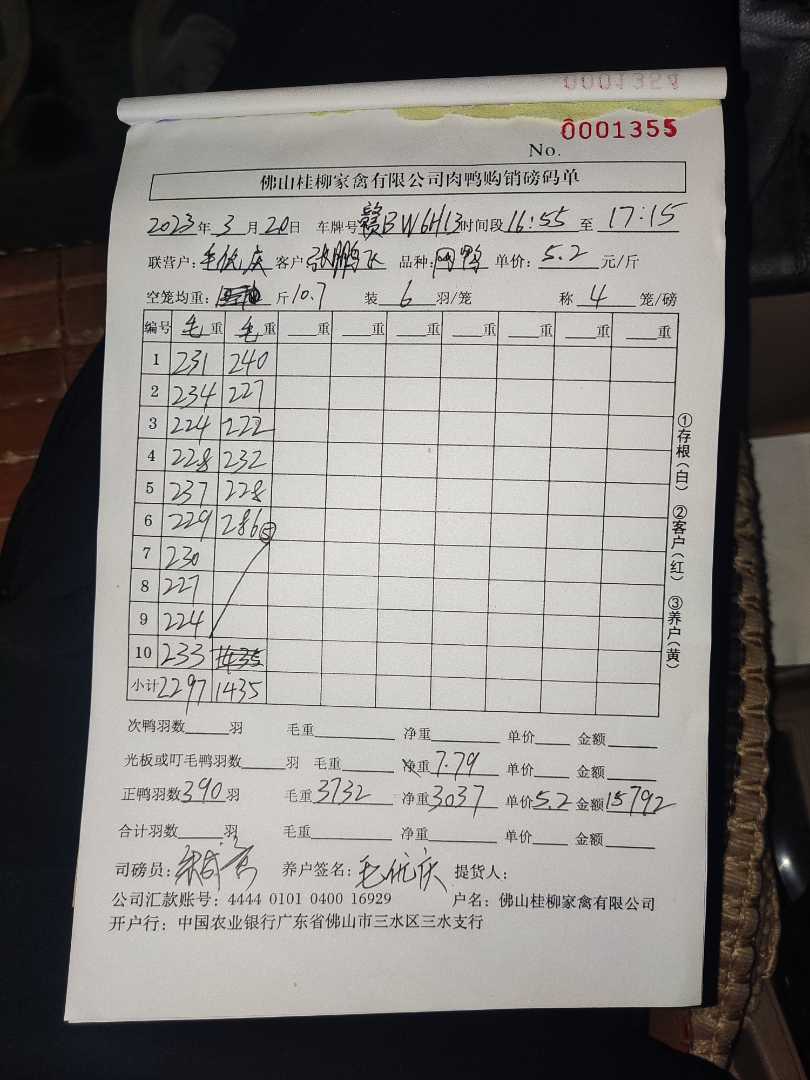 0001354
No. 0001355
佛山桂柳家禽有限公司肉鸭购销磅码单
2023年3月20日 车牌号赣BW6H13时间段16:55至17:15
联营户:毛优庆 客户:张鹏飞 品种: 单价:5.2元/斤
空笼均重: 斤10.7 装6羽/笼 称4笼/磅
编号 毛重 毛重 重 重 重 重 重 重 重
1 231 240
2 234 227
3 224 222
4 228 232
5 237 228
6 229 286 ⑤
7 230
8 227
9 224
10 233 1435
小计 2297 1435
①存根(白) ②客户(红) ③养户(黄)
次鸭羽数 羽 毛重 净重 单价 金额
光板或叮毛鸭羽数 羽 毛重 净重7.79 单价 金额
正鸭羽数390羽 毛重3732 净重3037 单价5.2 金额15792
合计羽数 羽 毛重 净重 单价 金额
司磅员: 养户签名:毛优庆 提货人:
公司汇款账号:4444 0101 0400 16929 户名:佛山桂柳家禽有限公司
开户行:中国农业银行广东省佛山市三水区三水支行